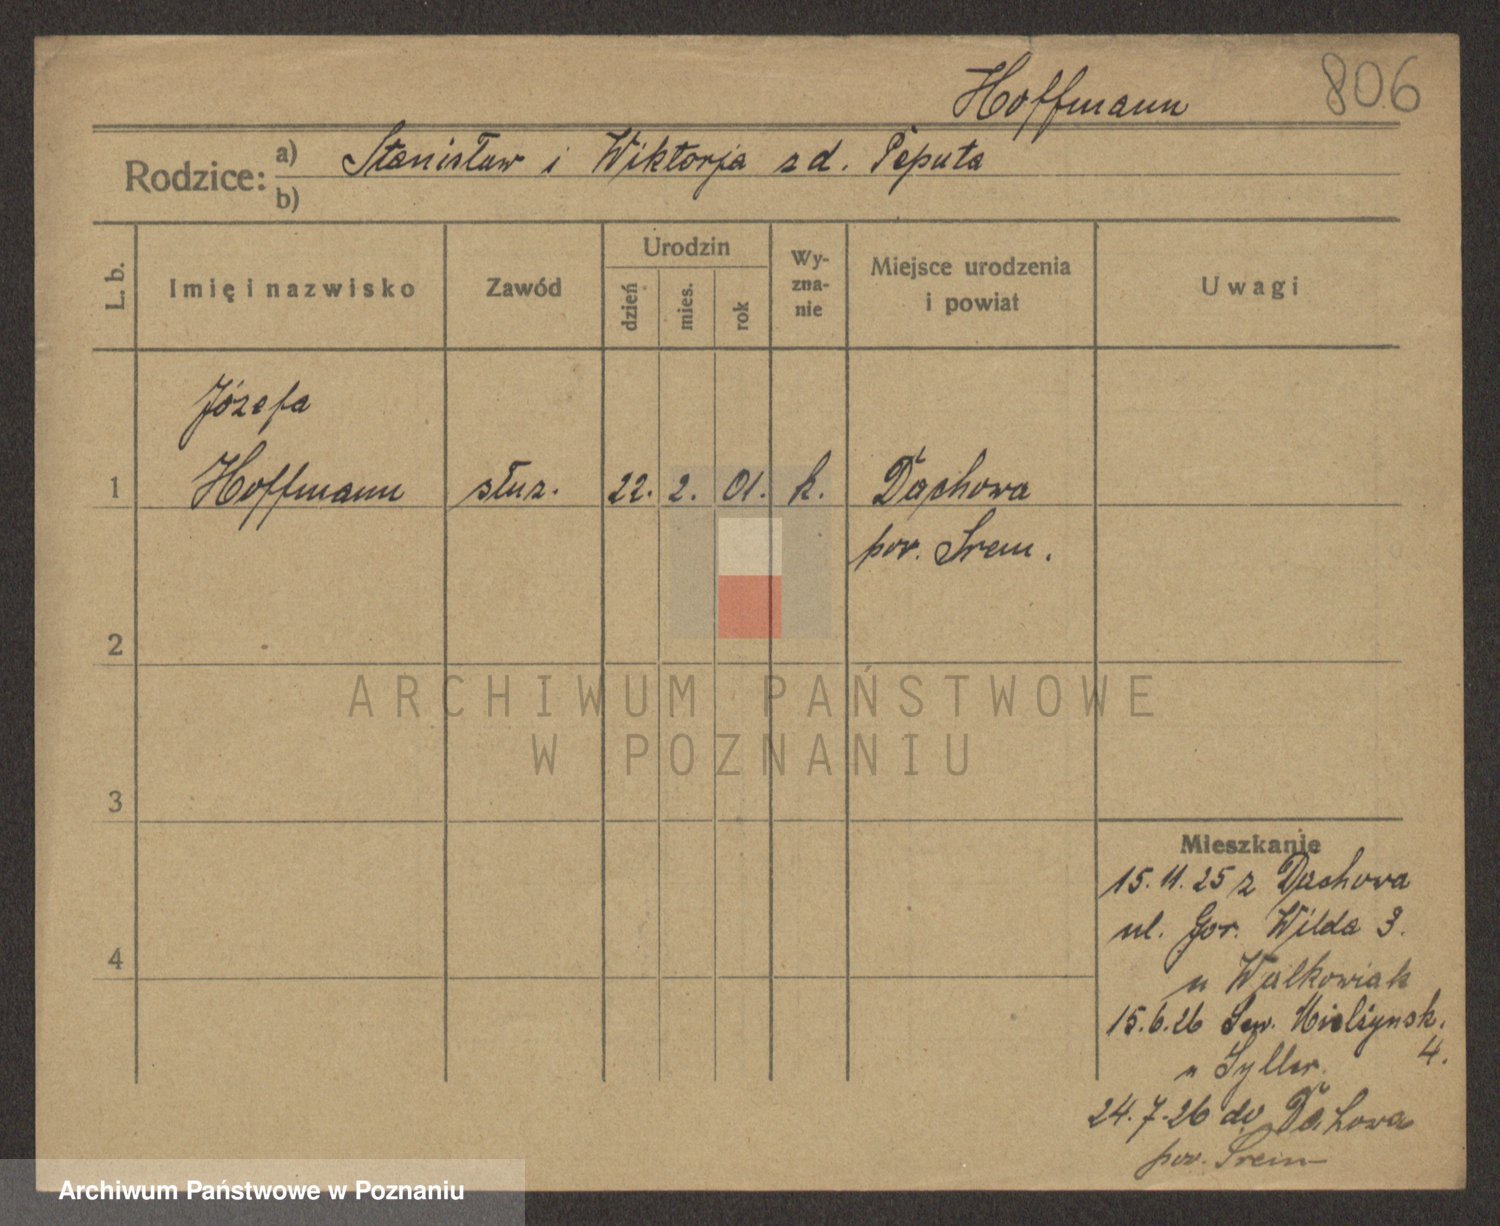 Hoffmann
806
Rodzice: a) Stanisław i Wiktorja z d. Peputa
b)
L. b.
Imię i nazwisko
Zawód
Urodzin
dzień
mies.
rok
Wy-
zna-
nie
Miejsce urodzenia
i powiat
Uwagi
Józefa
1 Hoffmann służ. 22. 2. 01. k. Dachowa
pow. Śrem.
2
3
4
ARCHIWUM PAŃSTWOWE
W POZNANIU
Mieszkanie
15.11.25 z Dachowa
ul. Gór. Wilda 3.
u Walkowiak
15.6.26 Sew. Mielżyńsk.
4.
u Syller.
24.7.26 do Dachowa
pow. Śrem
Archiwum Państwowe w Poznaniu